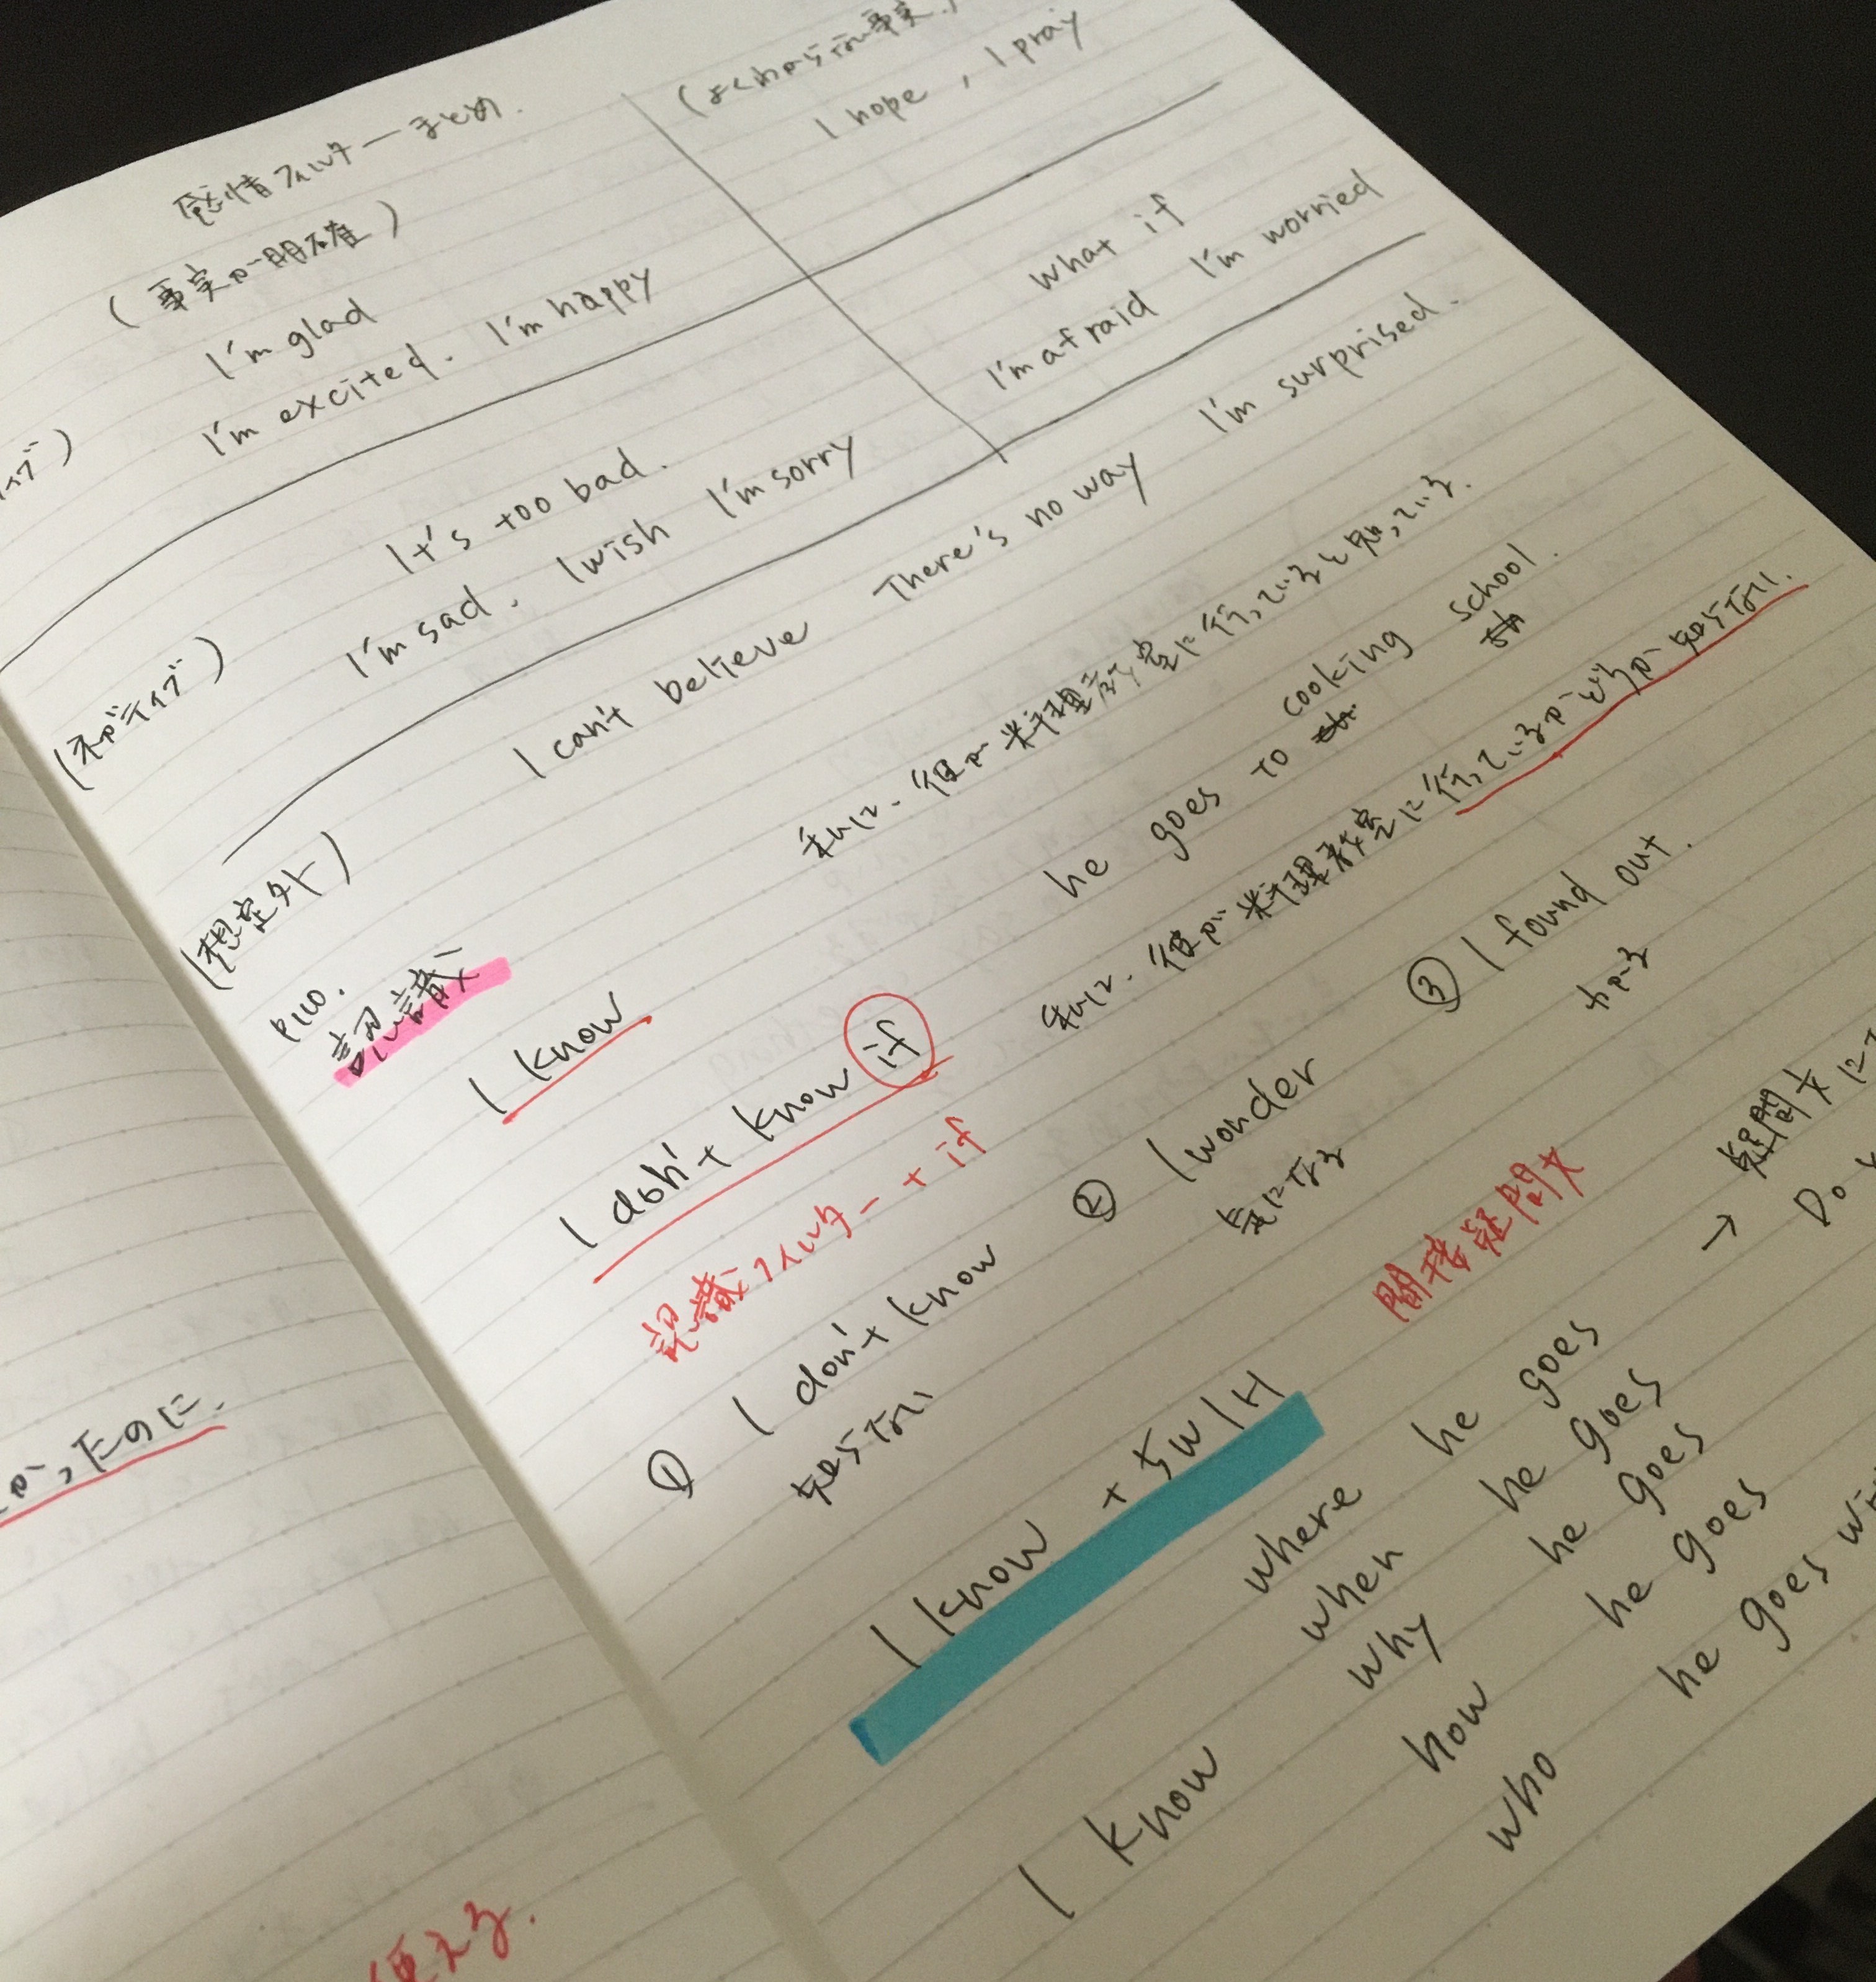 感情フィルターまとめ.
(よくわからない事実)
(事実が明確)
I hope, I pray
I'm glad
I'm excited. I'm happy
what if
I'm afraid I'm worried
(ネガティブ)
It's too bad.
I'm sad. I wish I'm sorry
(想定外)
I can't believe There's no way I'm surprised.
P110.
認識
I know
私は、彼が料理教室に行っていると知っている.
he goes to cooking school.
I don't know if
私は、彼が料理教室に行っているかどうか知らない.
認識フィルター + if
① I don't know ② I wonder ③ I found out.
知らない 気になる わかる
I know + 5W1H
間接疑問文
→ 疑問文に
Do
I know where he goes
when he goes
why he goes
how he goes
who he goes
かったのに.
使える.